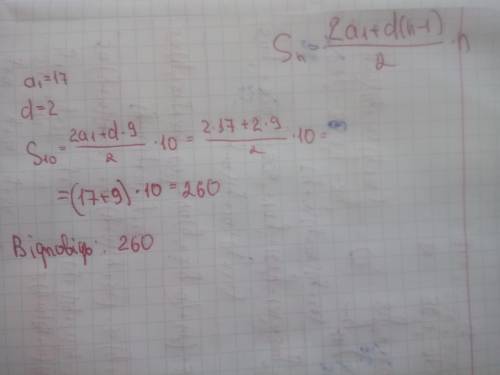 Sₙ = (2a₁+d(n-1))/2 · n
a₁=17
d=2
S₁₀= (2a₁+d·9)/2 · 10 = (2·17+2·9)/2 · 10 =
=(17+9)·10=260
Відповідь: 260